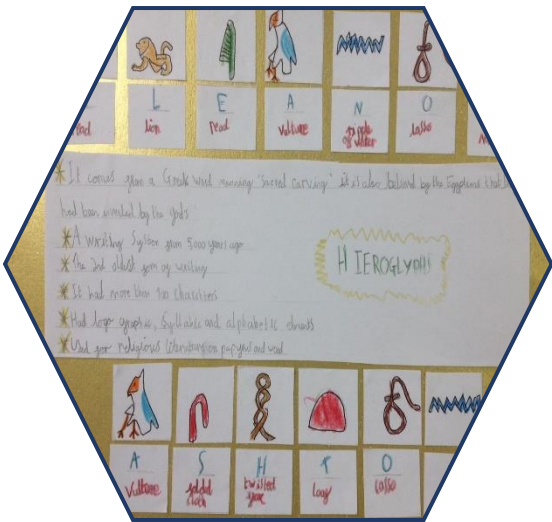 L E A N O
Lion reed Vulture ripple of water lasso
It comes from a Greek word meaning 'sacred carving' it is also believed by the Egyptians that
had been invented by the gods
A writing System from 5,000 years ago
The 2nd oldest form of writing
HIEROGLYPHS
It had more than 700 characters
Had logo graphic, Syllabic and alphabetic elements
Used for religious literature on papyrus and wood
A S H T O
Vulture folded cloth twisted loaf lasso